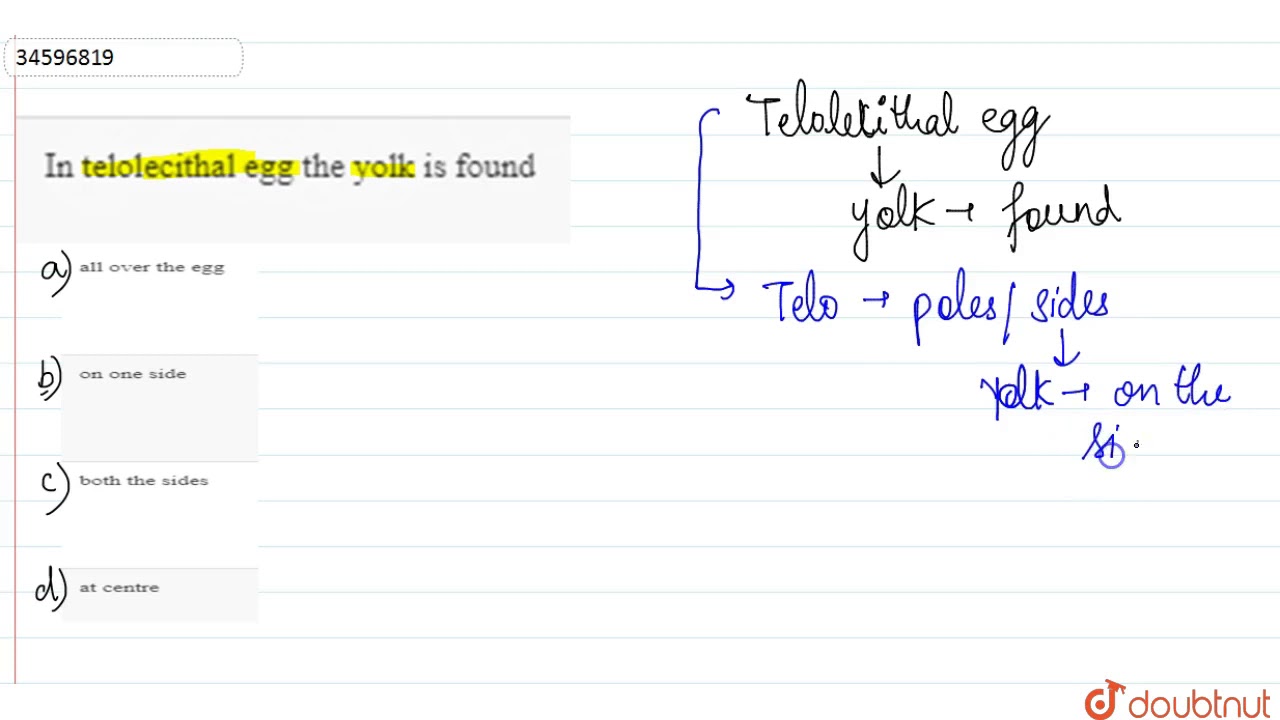 34596819
In telolecithal egg the yolk is found
a) all over the egg
b) on one side
c) both the sides
d) at centre
Telolecithal egg
↓
yolk → found
Telo → poles/ sides
↓
yolk → on the
si
doubtnut